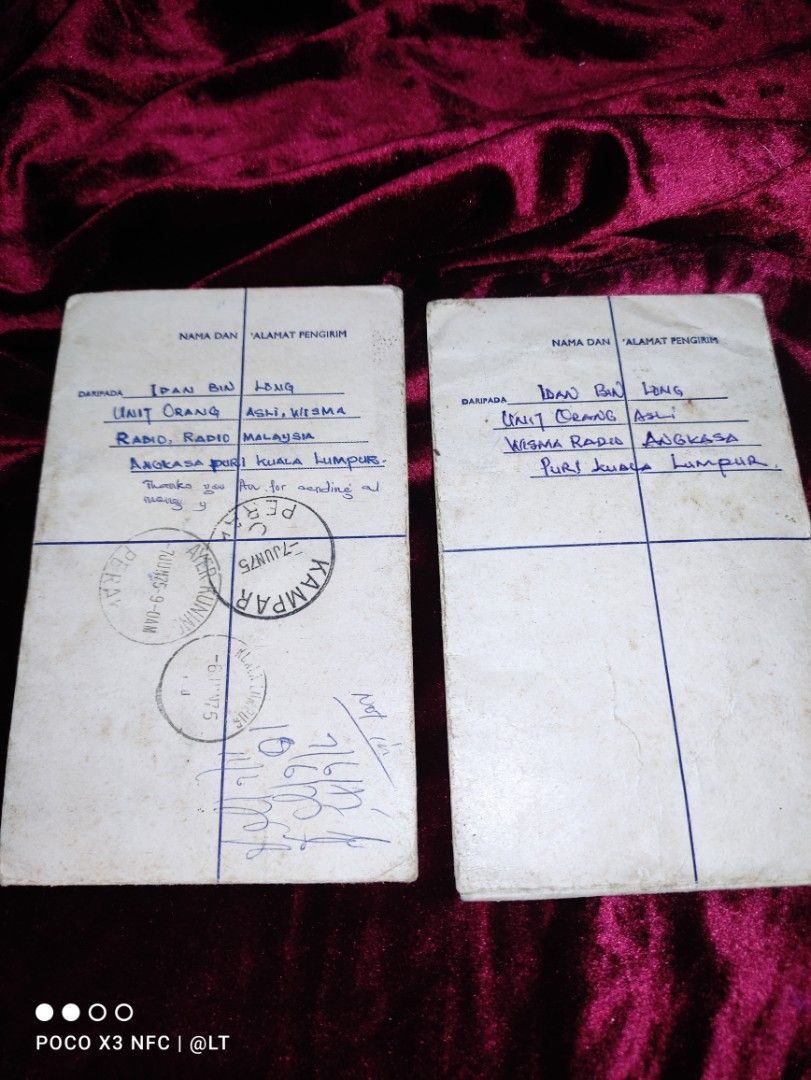 NAMA DAN ALAMAT PENGIRIM
DARIPADA IDAN BIN LONG
UNIT ORANG ASLI, WISMA
RADIO, RADIO MALAYSIA
ANGKASA PURI KUALA LUMPUR.
Thanks you for sending
PERAK
C
-7JUN75
KAMPAR
AYER KUNING
-7JUN75-9-0AM
PERAK
KUALA LUMPUR
-6JUN75
Not in
NAMA DAN ALAMAT PENGIRIM
DARIPADA IDAN BIN LONG
UNIT ORANG ASLI
WISMA RADIO ANGKASA
PURI KUALA LUMPUR.
POCO X3 NFC | @LT